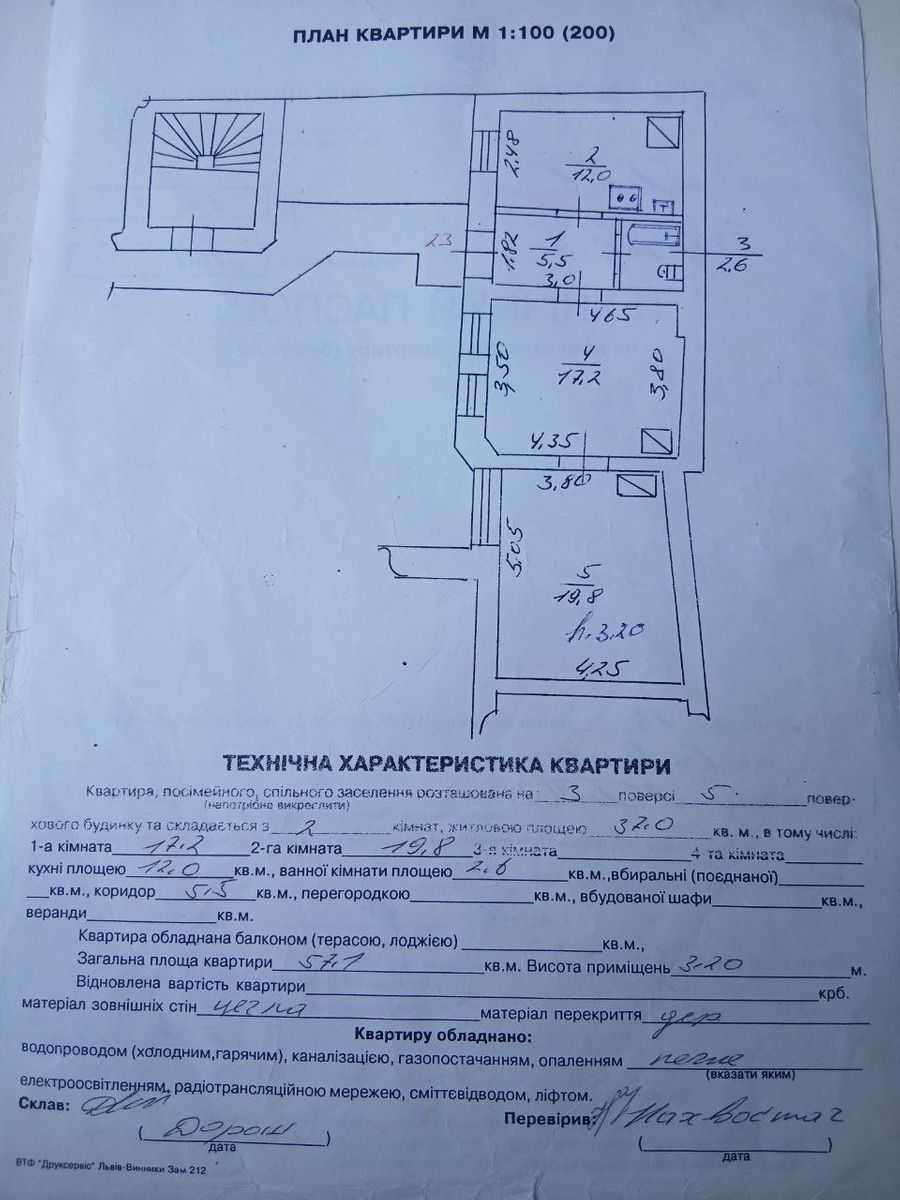 ПЛАН КВАРТИРИ М 1:100 (200)
2,48
2
12,0
23
1,82
1
5,5
3,0
3
2,6
4,65
3,50
4
17,2
3,80
4,35
3,80
5,05
5
19,8
h.3,20
4,25
ТЕХНІЧНА ХАРАКТЕРИСТИКА КВАРТИРИ
Квартира, посімейного, спільного заселення розташована на 3 поверсі 5 повер-
(непотрібне викреслити)
хового будинку та складається з 2 кімнат, житловою площею 37.0 кв. м., в тому числі:
1-а кімната 17.2 2-га кімната 19,8 3-я кімната 4 та кімната
кухні площею 12,0 кв.м., ванної кімнати площею 2.6 кв.м.,вбиральні (поєднаної)
кв.м., коридор 5,5 кв.м., перегородкою кв.м., вбудованої шафи кв.м.,
веранди кв.м.
Квартира обладнана балконом (терасою, лоджією) кв.м.,
Загальна площа квартири 57,1 кв.м. Висота приміщень 3.20 м.
Відновлена вартість квартири крб.
матеріал зовнішніх стін цегла матеріал перекриття дер
Квартиру обладнано:
водопроводом (холодним,гарячим), каналізацією, газопостачанням, опаленням пічне
(вказати яким)
електроосвітленням, радіотрансляційною мережею, сміттєвідводом, ліфтом.
Склав: Перевірив:
( Дорош )
дата
( )
дата
ВТФ "Друксервіс" Львів-Винники Зам 212